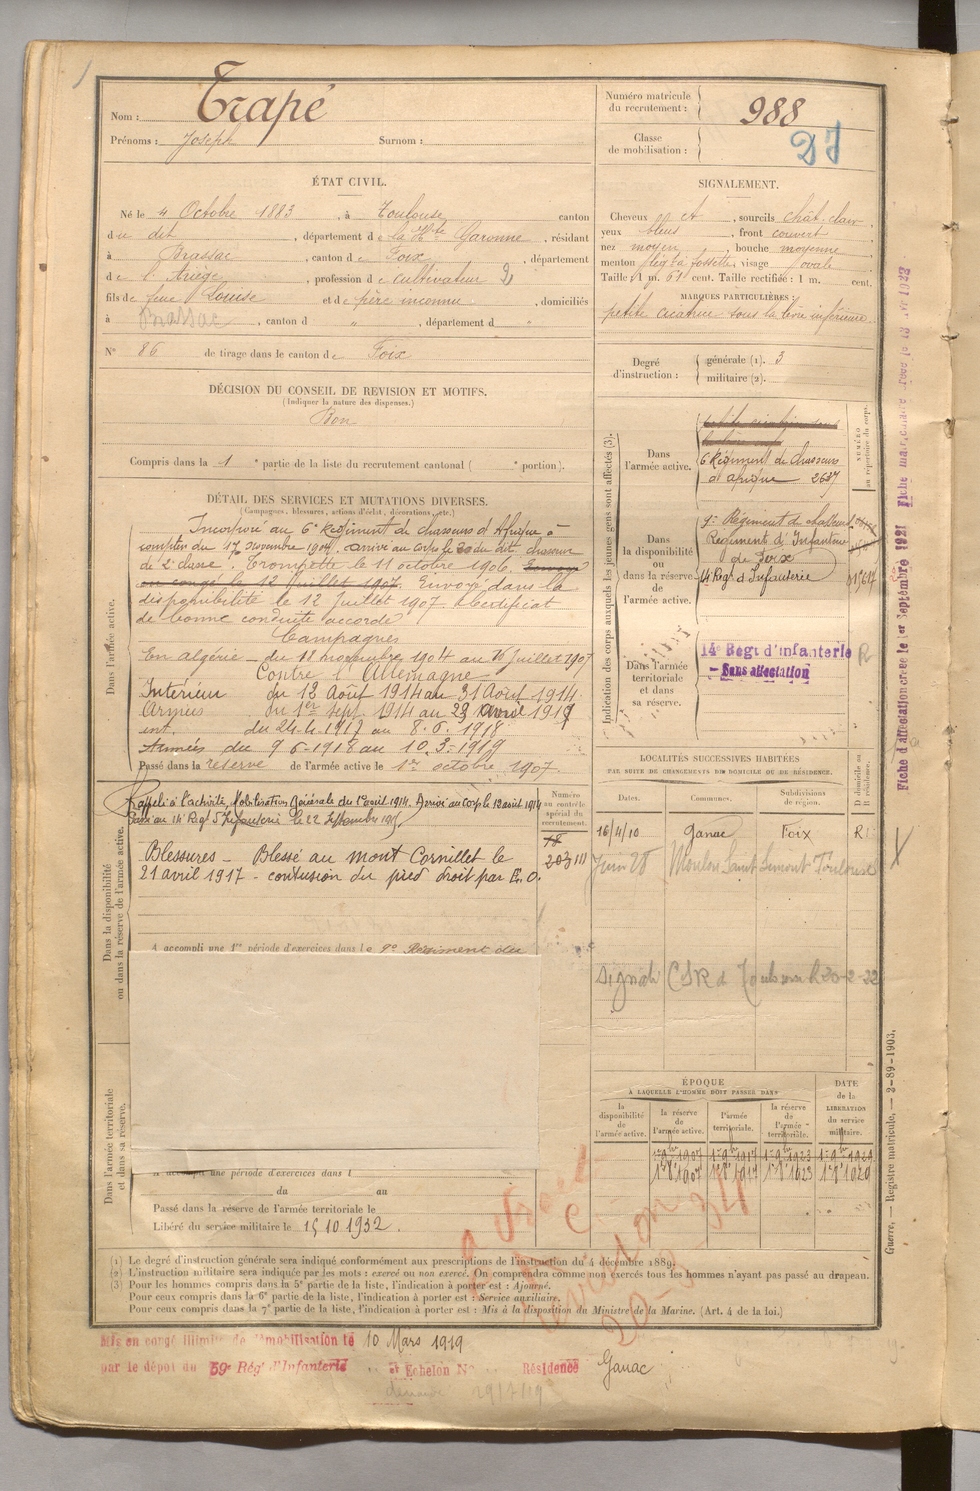 Nom : Trapé
Prénoms : Joseph Surnom :
Numéro matricule du recrutement : 988
Classe de mobilisation :
ÉTAT CIVIL.
Né le 4 Octobre 1883, à Toulouse canton
du dit, département de la Hte Garonne, résidant
à Brassac, canton de Foix, département
de l'Ariège, profession de cultivateur
fils de feue Louise et de père inconnu, domiciliés
à Brassac, canton d " , département d "
N° 86 de tirage dans le canton de Foix
SIGNALEMENT.
Cheveux ct, sourcils chât. clair,
yeux bleus, front couvert,
nez moyen, bouche moyenne,
menton à fossette, visage ovale
Taille : 1 m. 61 cent. Taille rectifiée : 1 m. cent.
MARQUES PARTICULIÈRES :
petite cicatrice sous la lèvre inférieure
Degré d'instruction : générale (1). 3
militaire (2).
DÉCISION DU CONSEIL DE REVISION ET MOTIFS.
(Indiquer la nature des dispenses.)
Bon
Compris dans la 1e partie de la liste du recrutement cantonal ( e portion).
DÉTAIL DES SERVICES ET MUTATIONS DIVERSES.
(Campagnes, blessures, actions d'éclat, décorations, etc.)
Dans l'armée active.
Incorporé au 6e Régiment de chasseurs d'Afrique à
compter du 17 novembre 1904, arrivé au corps le dit, chasseur
de 2e classe. Trompette le 11 octobre 1906. Envoyé
en congé le 12 Juillet 1907. Envoyé dans la
disponibilité le 12 Juillet 1907. Certificat
de bonne conduite accordé
Campagnes
En Algérie _ du 18 novembre 1904 au 16 juillet 1907
Contre l'Allemagne
Intérieur du 12 Août 1914 au 31 Août 1914
Armées du 1er Sept. 1914 au 23 Avril 1917
int. du 24.4.1917 au 8.6.1918
Armées du 9 6-1918 au 10.3.1919
Passé dans la réserve de l'armée active le 1er octobre 1907.
Indication des corps auxquels les jeunes gens sont affectés (3).
NUMÉRO au répertoire du corps.
Dans l'armée active.
6 Régiment de chasseurs
d'afrique 2637
Dans la disponibilité ou dans la réserve de l'armée active.
9e Régiment de chasseurs
Régiment d'Infanterie
de Foix
14 Régt d'Infanterie
Dans l'armée territoriale et dans sa réserve.
14e Régt d'Infanterie
- Sans affectation
R
Dans la disponibilité ou dans la réserve de l'armée active.
Rappelé à l'activité, Mobilisation Générale du 1er août 1914. Arrivé au Corps le 12 août 1914
Passé au 14e Régt d'Infanterie le 22 Septembre 1915.
Blessures _ Blessé au mont Cornillet le
21 avril 1917 - contusion du pied droit par E. O.
Numéro au contrôle spécial du recrutement.
A accompli une 1re période d'exercices dans le 9e Régiment de
LOCALITÉS SUCCESSIVES HABITÉES
PAR SUITE DE CHANGEMENTS DE DOMICILE OU DE RÉSIDENCE.
Dates. Communes. Subdivisions de région. D domicile ou R résidence.
16/4/10 Ganac Foix R
Juin 28 Toulouse
20-2-32
Dans l'armée territoriale et dans sa réserve.
A accompli une période d'exercices dans l
du au
Passé dans la réserve de l'armée territoriale le
Libéré du service militaire le 15 10 1932.
ÉPOQUE
À LAQUELLE L'HOMME DOIT PASSER DANS
la disponibilité de l'armée active. la réserve de l'armée active. l'armée territoriale. la réserve de l'armée territoriale.
DATE de la LIBÉRATION du service militaire.
(1) Le degré d'instruction générale sera indiqué conformément aux prescriptions de l'instruction du 4 décembre 1889.
(2) L'instruction militaire sera indiquée par les mots : exercé ou non exercé. On comprendra comme non exercés tous les hommes n'ayant pas passé au drapeau.
(3) Pour les hommes compris dans la 5e partie de la liste, l'indication à porter est : Ajourné.
Pour ceux compris dans la 6e partie de la liste, l'indication à porter est : Service auxiliaire.
Pour ceux compris dans la 7e partie de la liste, l'indication à porter est : Mis à la disposition du Ministre de la Marine. (Art. 4 de la loi.)
Mis en congé illimité de démobilisation le 10 Mars 1919
par le dépôt du 59e Rég' d'Infanterie Echelon N° Résidence Ganac
Fiche d'affectation créée le 1er Septembre 1921
Guerre. — Registre matricule. — 3-89-1903.